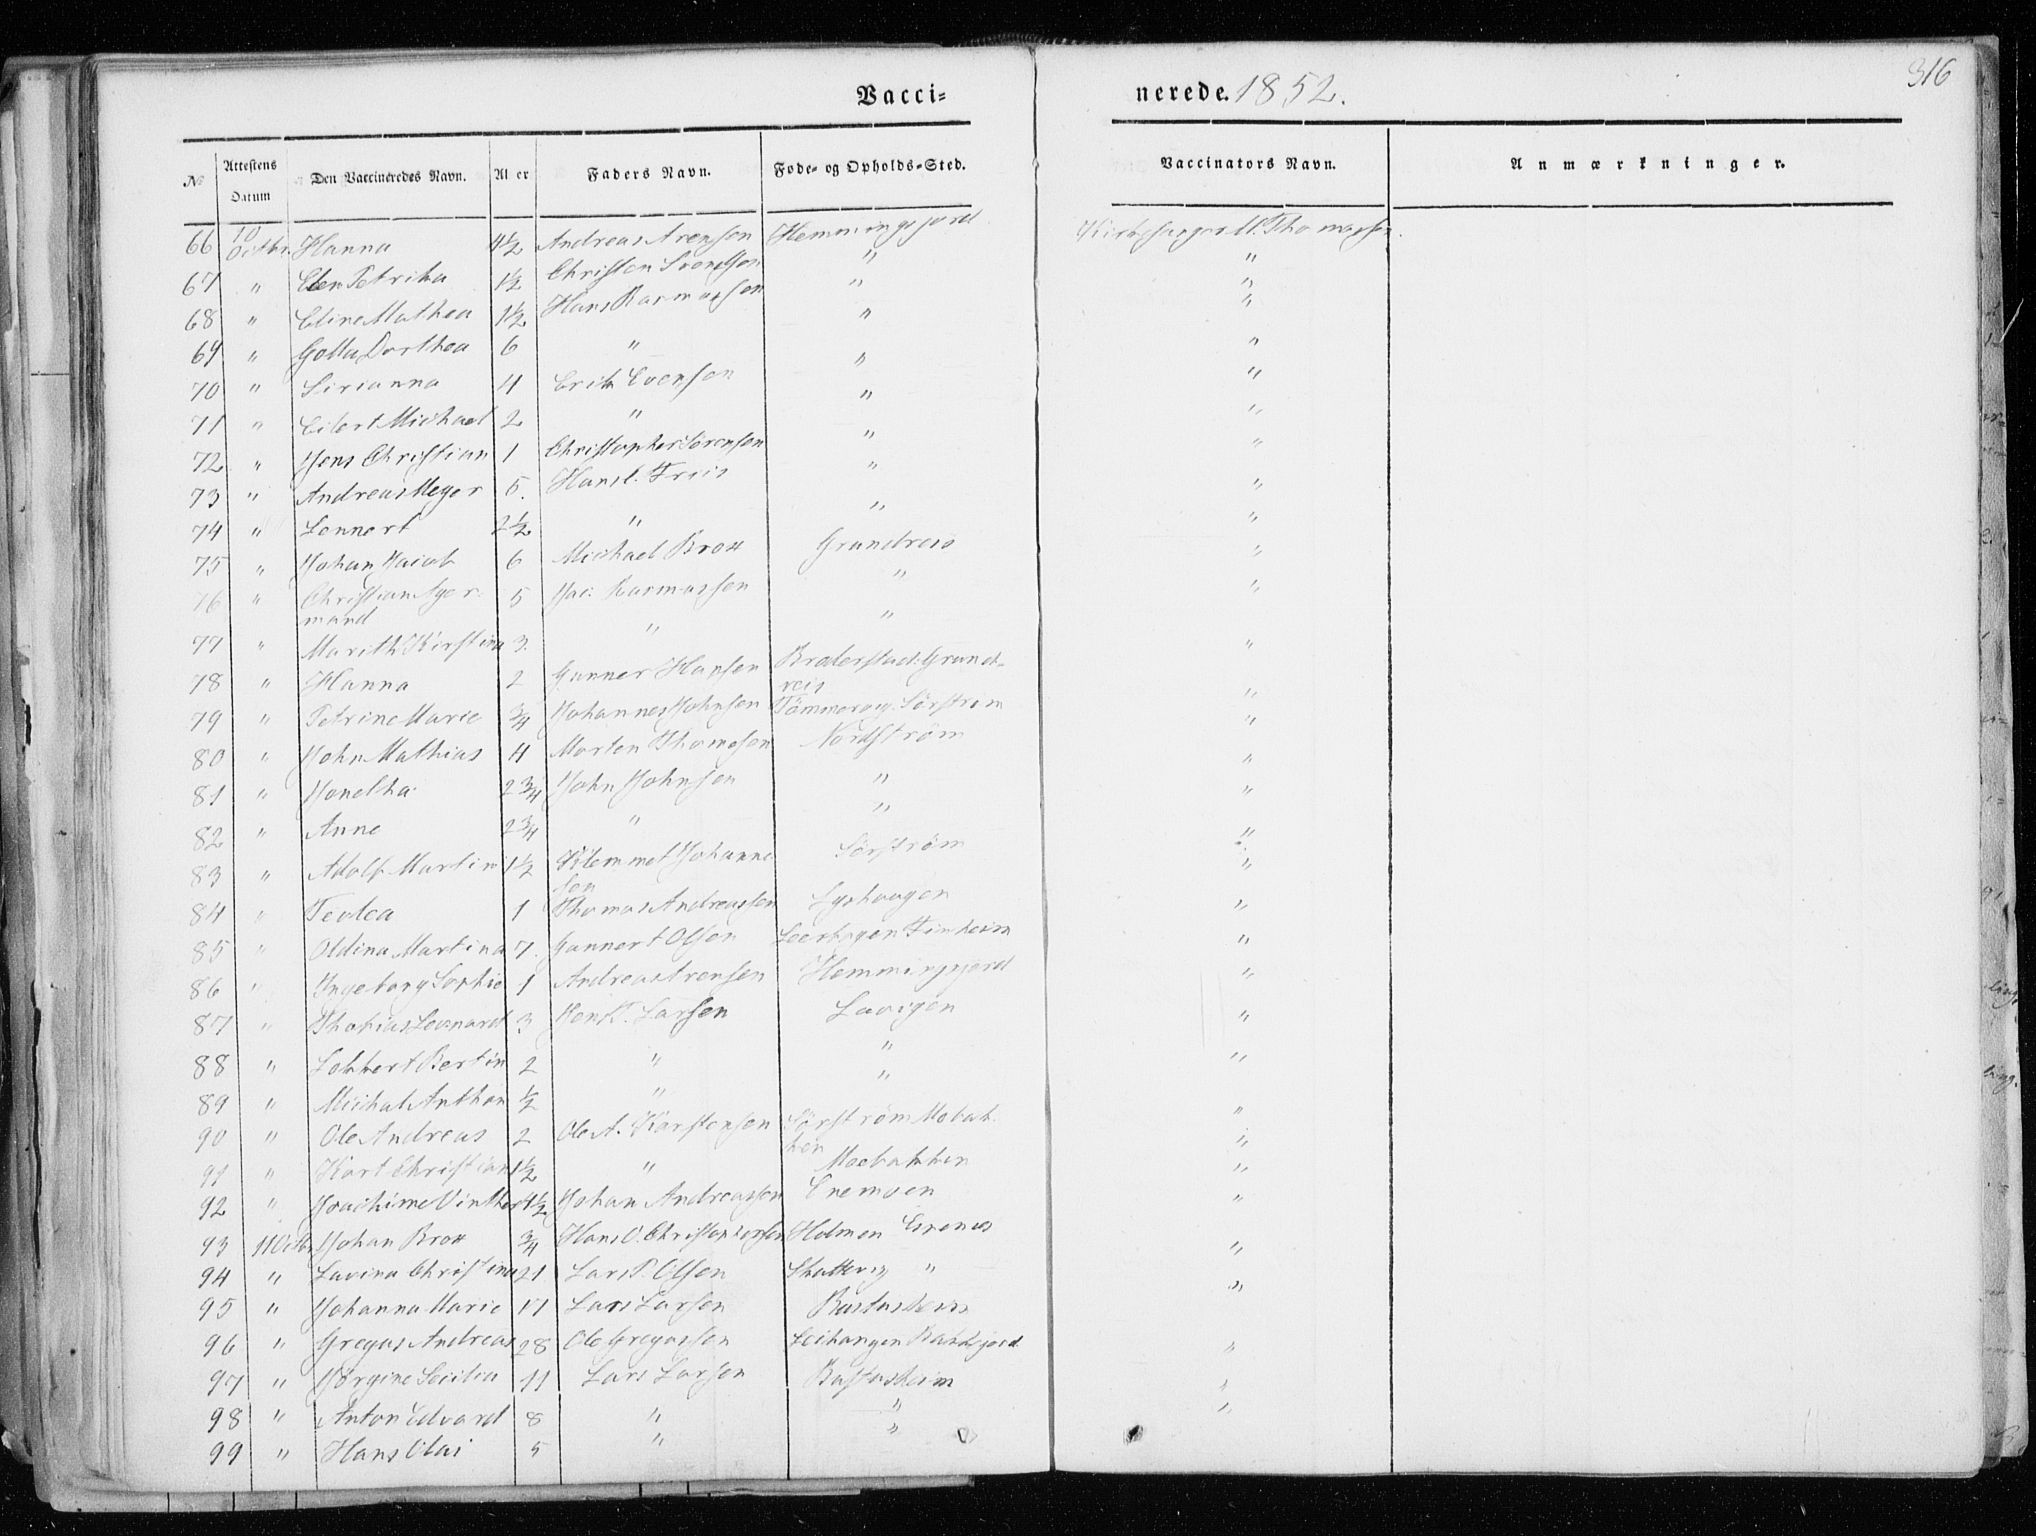 316
Vacci=
nerede. 1852.
№ Attestens Datum Den Vaccineredes Navn. Alder Faders Navn. Føde- og Opholds-Sted. Vaccinators Navn. Anmærkninger.
66 10 Octbr. Hanna 4½ Andreas Arensen Hemmingsjord Kirkesanger M. Thomassen.
67 " Elen Petrika 1½ Christen Svendsen " "
68 " Eline Mathea 1½ Hans Rasmussen " "
69 " Golla Dorthea 6 " " "
70 " Sirianna 4 Erik Evensen " "
71 " Eilert Michael 2 " " "
72 " Jens Christian 1 Christopher Sørensen " "
73 " Andreas Meyer 5. Hans C. Friis " "
74 " Lennert 2½ " " "
75 " Johan Jacob 6 Michael Brox Grundreis "
76 " Christian Ager-
mand 5 Jac. Rasmussen " "
77 " Marith Kirstina 3. " " "
78 " Hanna 2 Gunner Hansen Braderstad. Grund-
reis "
79 " Petrine Marie ¾ Johannes Johnsen Tømmervig. Sørstrøm "
80 " John Mathias 4 Morten Thomesen Nordstrøm "
81 " Jonetha 2¾ John Johnsen " "
82 " Anne 2¾ " " "
83 " Adolf Martin 1½ Klemmet Johanne-
sen Sørstrøm "
84 " Teolea 1 Thomas Andreassen Lyshaugen "
85 " Oldina Martina 7. Gunnert Olsen Finheim "
86 " Ingeborg Sophie 1 Andreas Arensen Hemmingsjord "
87 " Thobias Leonard 3 Hen. T. Larsen Lavigen "
88 " Lokkert Bertin 2 " " "
89 " Michal Anthon ½ " "
90 " Ole Andreas 2 Ole A. Karstensen Sørstrøm Mobak-
ken "
91 " Kort Christian 1½ " Moebakken "
92 " Joachime Vinther 4½ Johan Andreassen Enemoen "
93 11 Octbr Johan Brox ¾ Hans O. Christophersen Holmen Grenes "
94 " Lavina Christina 21 Lars P. Olsen Skattvig " "
95 " Johanna Marie 17 Lars Larsen Bustusheim "
96 " Gregus Andreas 28 Ole Gregussen Leihangen Bakkejord "
97 " Jørgine Secilia 11 Lars Larsen Bustusheim "
98 " Anton Edvard 8 " " "
99 " Hans Olai 5 " "